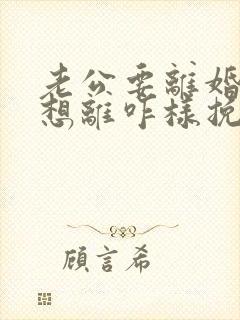 老公要離婚
想離咋樣挽
顧言希